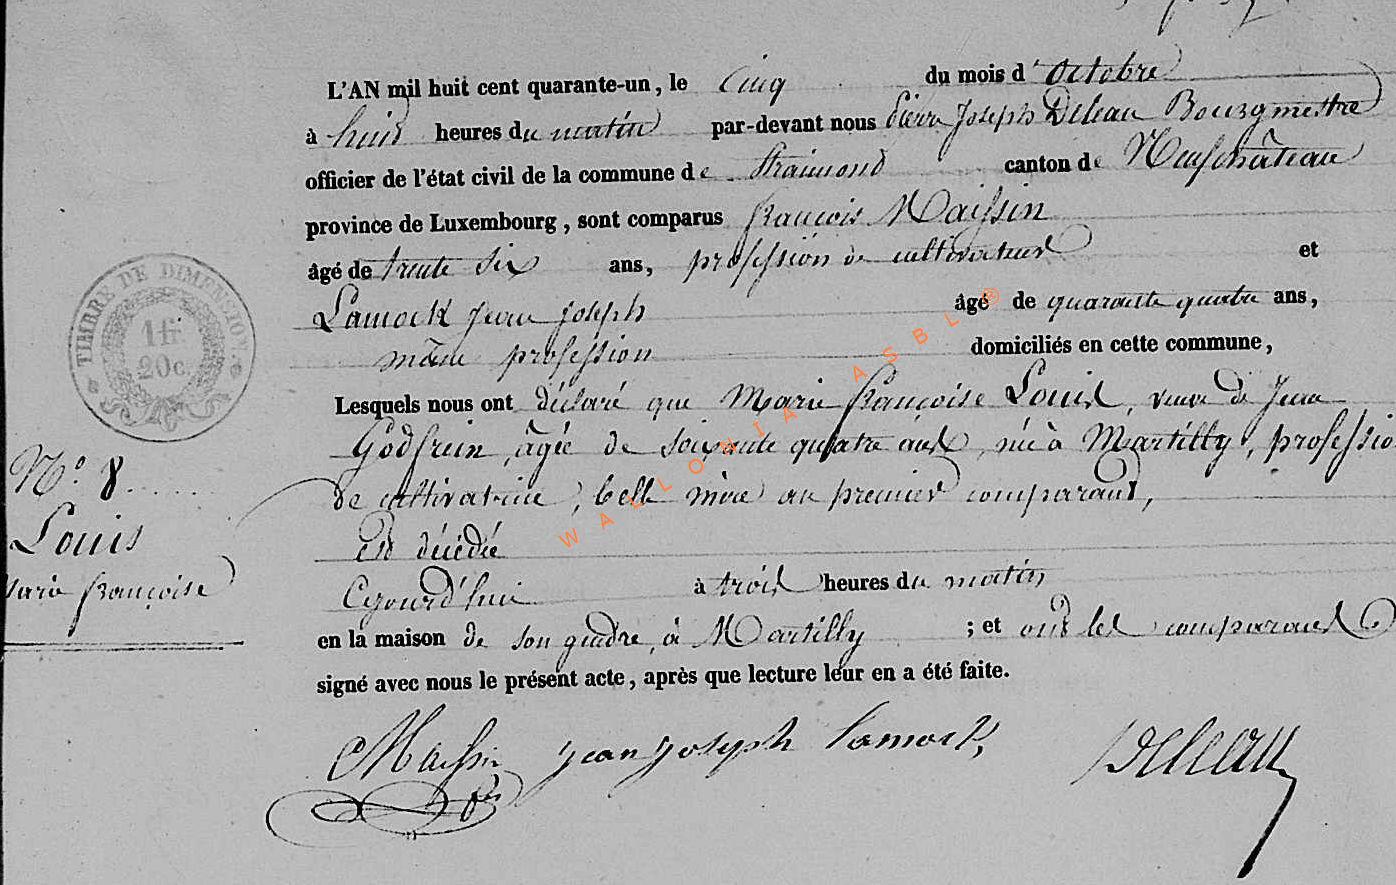 L'AN mil huit cent quarante-un, le Cinq du mois d'Octobre
à huit heures du matin par-devant nous Pierre Joseph Deleau Bourgmestre
officier de l'état civil de la commune de Straimond canton de Neufchâteau
province de Luxembourg, sont comparus François Maissin
âgé de trente six ans, profession de cultivateur et
Lamock Jean Joseph âgé de quarante quatre ans,
même profession domiciliés en cette commune,
Lesquels nous ont déclaré que Marie françoise Louis, veuve de Jean
Godfrein, âgée de soixante quatre ans, née à Martilly, professio
de cultivatrice, belle mère au premier comparant,
Est décédée
Cejourd'hui à trois heures du matin
en la maison de son gendre, à Martilly ; et ont les comparants
signé avec nous le présent acte, après que lecture leur en a été faite.
TIMBRE DE DIMENSION.
1fr.
20c.
N.° 8
Louis
Marie françoise
Maissin jean joseph Lamock
Deleau
WALLONIA ASBL ®